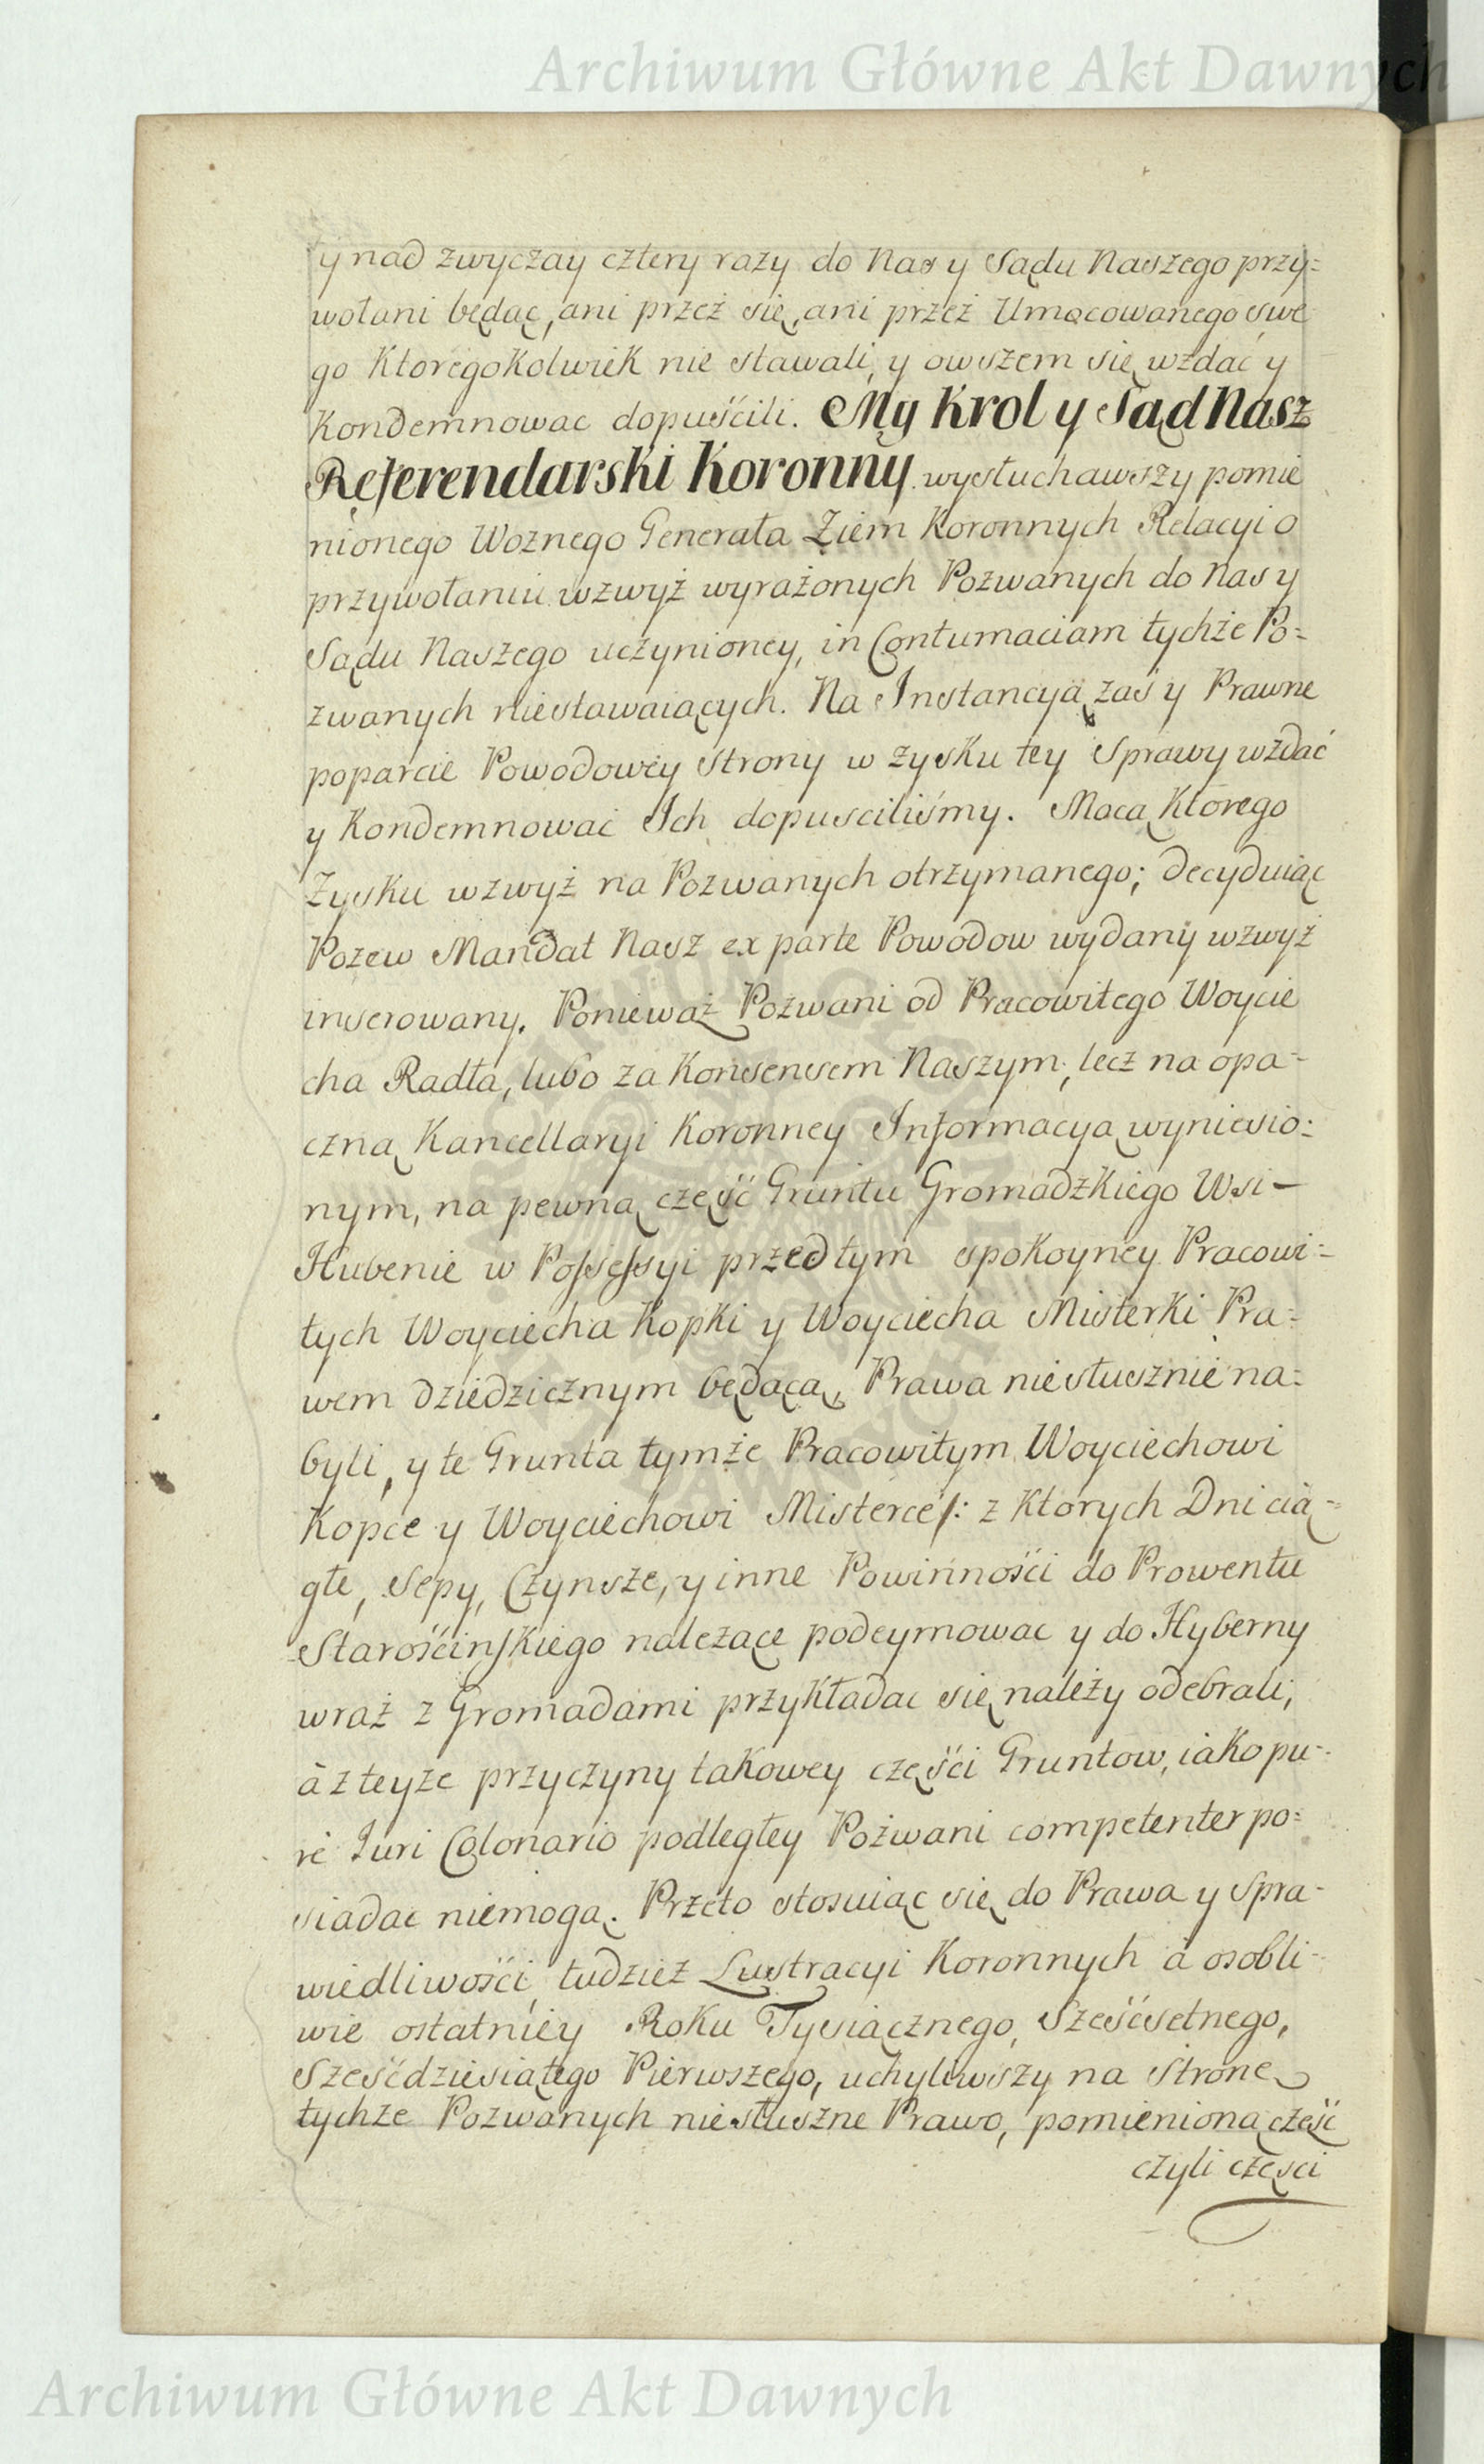 Archiwum Główne Akt Dawnych
y nad zwyczay cztery razy do Nas y Sądu Naszego przy=
wołani będąc, ani przez się, ani przez Umocowanego swe
go Ktoregokolwiek nie stawali, y owszem się wzdać y
Kondemnowac dopuścili. My Krol y Sąd Nasz
Referendarski Koronny wysłuchawszy pomie
nionego Woznego Generała Ziem Koronnych Relacyi o
przywołaniu wzwyż wyrażonych Pozwanych do Nas y
Sądu Naszego uczynioney, in Contumaciam tychże Po=
zwanych niestawaiących. Na Instancyą zaś y Prawne
poparcie Powodowey Strony w zysku tey Sprawy wzdać
y Kondemnować Ich dopuściliśmy. Mocą Ktorego
Zysku wzwyż na Pozwanych otrzymanego; decyduiąc
Pozew Mandat Nasz ex parte Powodow wydany wzwyż
inserowany. Ponieważ Pozwani od Pracowitego Woycie
cha Radła, lubo za Konsensem Naszym, lecz na opa=
czną Kancellaryi Koronney Informacyą wyniesio=
nym, na pewną część Gruntu Gromadzkiego Wsi -
Hubenie w Possessyi przedtym spokoyney Pracowi=
tych Woyciecha Kopki y Woyciecha Misterki Pra=
wem dziedzicznym będącą, Prawa niesłusznie na=
byli, y te Grunta tymże Pracowitym Woyciechowi
Kopce y Woyciechowi Misterce /: z Ktorych Dni cią=
głe, Sepy, Czynsze, y inne Powinności do Prowentu
Starościnskiego należące podeymowac y do Hyberny
wraz z Gromadami przykładac się należy odebrali,
à z teyże przyczyny takowey części Gruntow, iako pu=
rè Iuri Colonario podległey Pozwani competenter po=
siadac niemogą. Przeto stosuiąc się do Prawa y Spra=
wiedliwości tudzież Lustracyi Koronnych à osobli=
wie ostatniey Roku Tysiącznego, Sześćsetnego,
Sześćdziesiątego Pierwszego, uchyliwszy na stronę
tychże Pozwanych niesłuszne Prawo, pomienioną część
czyli części
Archiwum Główne Akt Dawnych